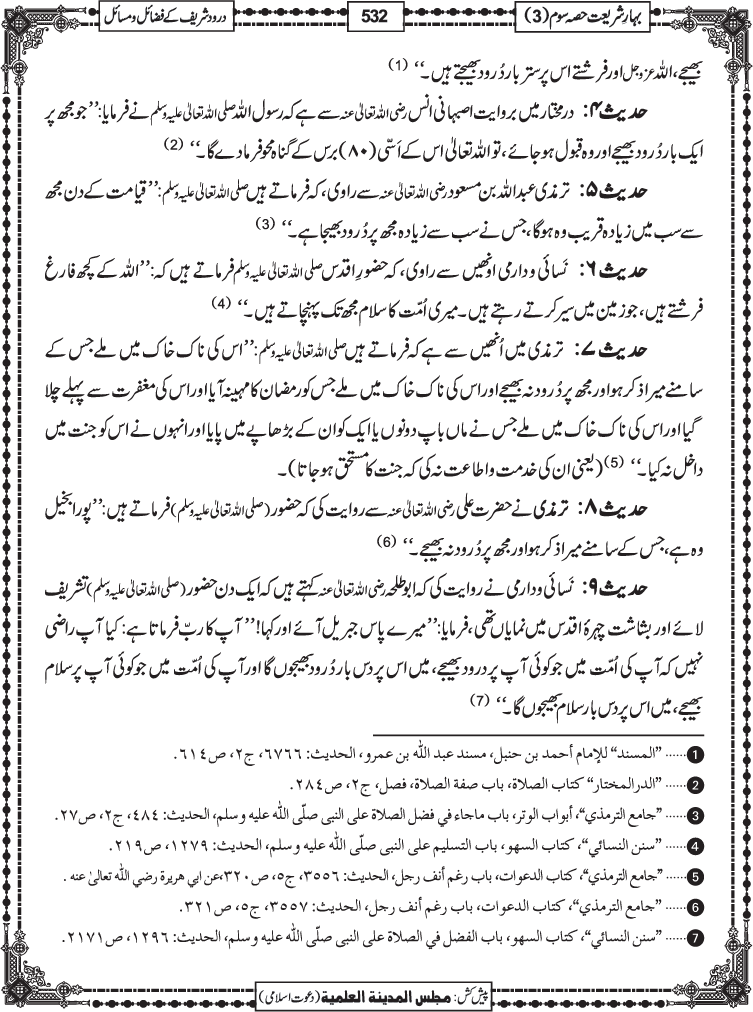 بہارِ شریعت حصہ سوم (3)
532
درود شریف کے فضائل و مسائل
بھیجے، اللہ عزوجل اور فرشتے اس پر ستر بار دُرود بھیجتے ہیں۔‘‘ (1)
حدیث ۴: درمختار میں بروایت اصبہانی انس رضی اللہ تعالیٰ عنہ سے ہے کہ رسول اللہ صلی اللہ تعالیٰ علیہ وسلم نے فرمایا: ’’جو مجھ پر
ایک بار دُرود بھیجے اور وہ قبول ہو جائے، تو اللہ تعالیٰ اس کے اَسّی (۸۰) برس کے گناہ محو فرما دے گا۔‘‘ (2)
حدیث ۵: ترمذی عبداللہ بن مسعود رضی اللہ تعالیٰ عنہ سے راوی، کہ فرماتے ہیں صلی اللہ تعالیٰ علیہ وسلم: ’’قیامت کے دن مجھ
سے سب میں زیادہ قریب وہ ہوگا، جس نے سب سے زیادہ مجھ پر دُرود بھیجا ہے۔‘‘ (3)
حدیث ۶: نَسائی و دارمی اونھیں سے راوی، کہ حضورِ اقدس صلی اللہ تعالیٰ علیہ وسلم فرماتے ہیں کہ: ’’اللہ کے کچھ فارغ
فرشتے ہیں، جو زمین میں سیر کرتے رہتے ہیں۔ میری اُمّت کا سلام مجھ تک پہنچاتے ہیں۔‘‘ (4)
حدیث ۷: ترمذی میں اُنھیں سے ہے کہ فرماتے ہیں صلی اللہ تعالیٰ علیہ وسلم: ’’اس کی ناک خاک میں ملے جس کے
سامنے میرا ذکر ہو اور مجھ پر دُرود نہ بھیجے اور اس کی ناک خاک میں ملے جس کو رمضان کا مہینہ آیا اور اس کی مغفرت سے پہلے چلا
گیا اور اس کی ناک خاک میں ملے جس نے ماں باپ دونوں یا ایک کو ان کے بڑھاپے میں پایا اور انہوں نے اس کو جنت میں
داخل نہ کیا۔‘‘ (5) (یعنی ان کی خدمت و اطاعت نہ کی کہ جنت کا مستحق ہو جاتا)۔
حدیث ۸: ترمذی نے حضرت علی رضی اللہ تعالیٰ عنہ سے روایت کی کہ حضور (صلی اللہ تعالیٰ علیہ وسلم) فرماتے ہیں: ’’پورا بخیل
وہ ہے، جس کے سامنے میرا ذکر ہو اور مجھ پر دُرود نہ بھیجے۔‘‘ (6)
حدیث ۹: نَسائی و دارمی نے روایت کی کہ ابوطلحہ رضی اللہ تعالیٰ عنہ کہتے ہیں کہ ایک دن حضور (صلی اللہ تعالیٰ علیہ وسلم) تشریف
لائے اور بشاشت چہرۂ اقدس میں نمایاں تھی، فرمایا: ’’میرے پاس جبریل آئے اور کہا!’’ آپ کا ربّ فرماتا ہے: کیا آپ راضی
نہیں کہ آپ کی اُمّت میں جو کوئی آپ پر درود بھیجے، میں اس پر دس بار دُرود بھیجوں گا اور آپ کی اُمّت میں جو کوئی آپ پر سلام
بھیجے، میں اس پر دس بار سلام بھیجوں گا۔‘‘ (7)
1 ...... ”المسند“ للإمام أحمد بن حنبل، مسند عبد اللّٰه بن عمرو، الحديث: ٦٧٦٦، ج٢، ص٦١٤.
2 ...... ”الدرالمختار“ كتاب الصلاة، باب صفة الصلاة، فصل، ج٢، ص٢٨٤.
3 ...... ”جامع الترمذي“، أبواب الوتر، باب ماجاء في فضل الصلاة على النبی صلّی اللّٰه علیه وسلم، الحديث: ٤٨٤، ج٢، ص٢٧.
4 ...... ”سنن النسائي“، كتاب السهو، باب التسليم على النبی صلّی اللّٰه علیه وسلم، الحديث: ١٢٧٩، ص٢١٩.
5 ...... ”جامع الترمذي“، كتاب الدعوات، باب رغم أنف رجل، الحديث: ٣٥٥٦، ج٥، ص٣٢٠، عن ابي هريرة رضي اللّٰه تعالیٰ عنه .
6 ...... ”جامع الترمذي“، كتاب الدعوات، باب رغم أنف رجل، الحديث: ٣٥٥٧، ج٥، ص٣٢١.
7 ...... ”سنن النسائي“، كتاب السهو، باب الفضل في الصلاة على النبی صلّی اللّٰه علیه وسلم، الحديث: ١٢٩٦، ص٢١٧١.
پیش کش: مجلس المدینة العلمیة (دعوت اسلامی)